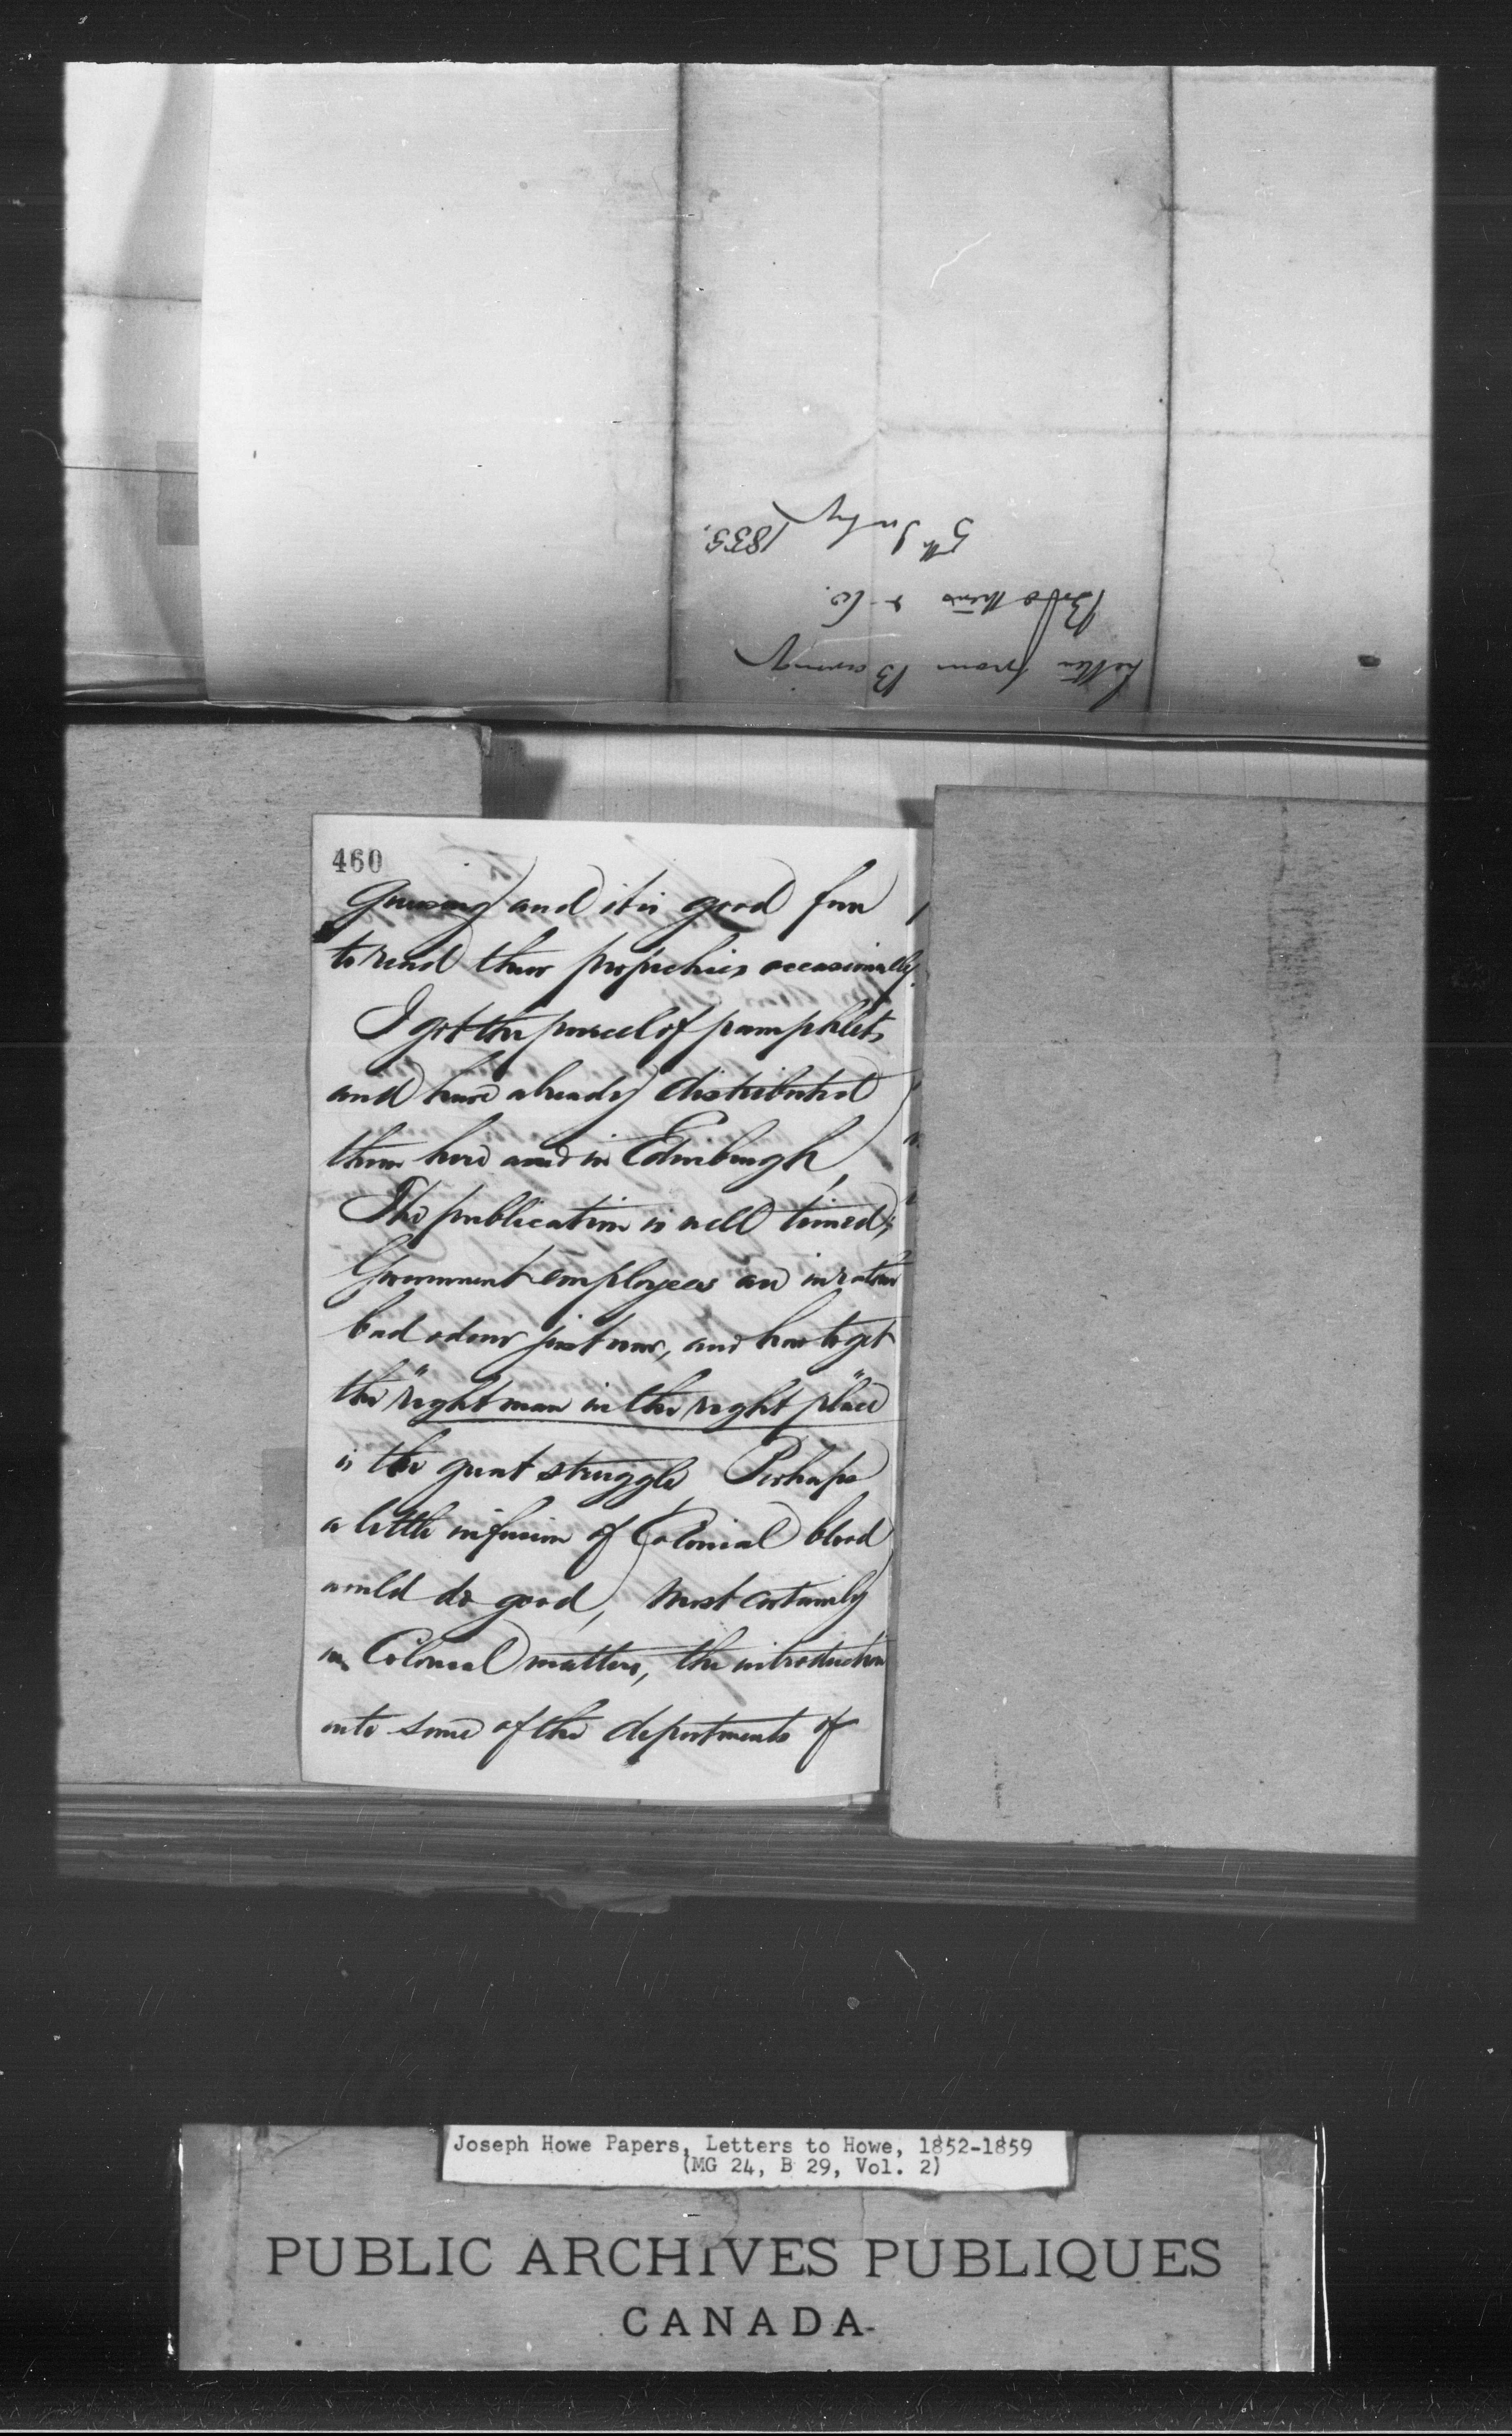 Letter from Baring
Brothers & Co.
5th July 1855.
460
and it is good fun
to read their prophecies occasionally.
I got the parcel of pamphlets
and have already distributed
them here and in Edinburgh,
The publication is well timed;
Government employees are in rather
bad odour just now, and how to get
the "right man in the right place"
is the great struggle, Perhaps
a little infusion of Colonial blood
would do good, Most certainly
in Colonial matters, the introduction
into some of the departments of
Joseph Howe Papers, Letters to Howe, 1852-1859
(MG 24, B 29, Vol. 2)
PUBLIC ARCHIVES PUBLIQUES
CANADA